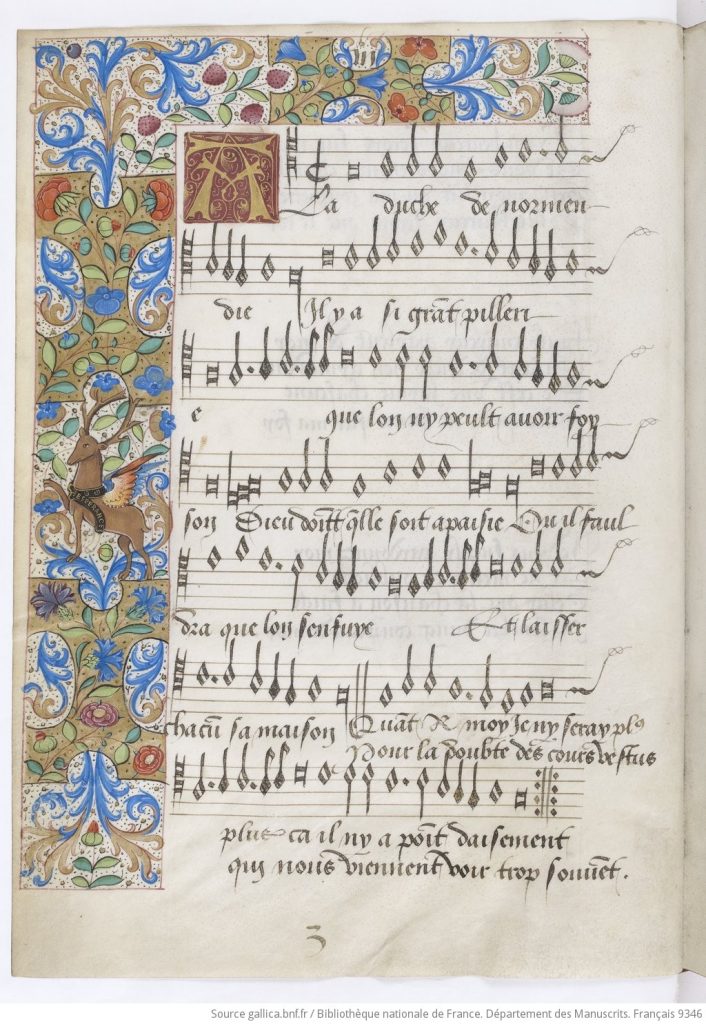 iii
A La duche de normen
die Il y a si grãt pilleri
e que lon ny peult avoir foy
son Dieu doītt q̃lle soit apaisie Ou il faul
dra que lon senfuye Et laisser
chacũ sa maison Quãt A moy Je ny seray pl⁹
Pour la doubte des cours vestus
plus ca il ny a poĩt daisement
qui nous viennent voir trop souuẽt.
3
Source gallica.bnf.fr / Bibliothèque nationale de France. Département des Manuscrits. Français 9346